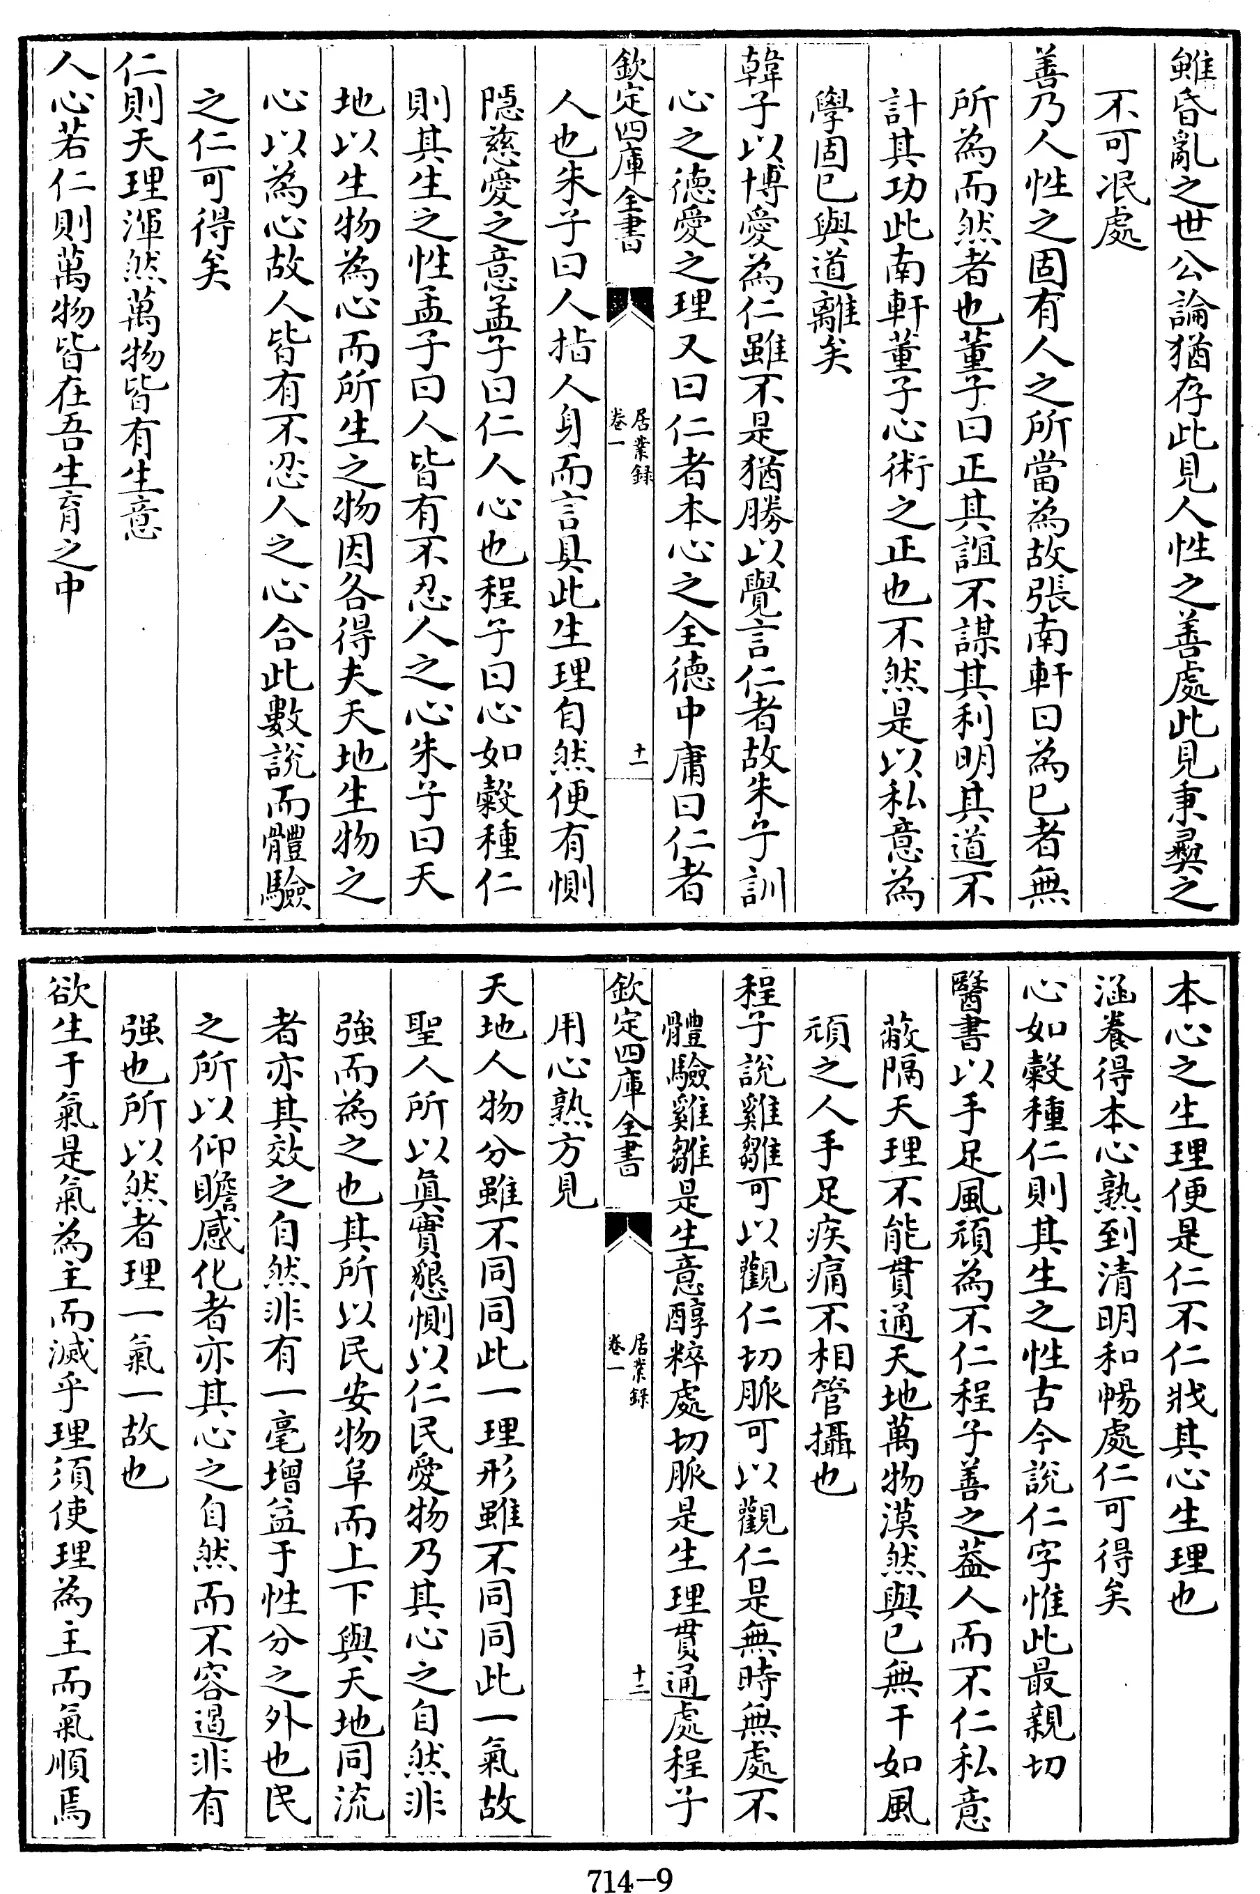 雖昏亂之世公論猶存此見人性之善處此見秉彝之
不可泯處
善乃人性之固有人之所當為故張南軒曰為己者無
所為而然者也董子曰正其誼不謀其利明其道不
計其功此南軒董子心術之正也不然是以私意為
學固已與道離矣
韓子以博愛為仁雖不是猶勝以覺言仁者故朱子訓
心之德愛之理又曰仁者本心之全德中庸曰仁者
欽定四庫全書
居業録
卷一
十一
人也朱子曰人指人身而言具此生理自然便有惻
隠慈愛之意孟子曰仁人心也程子曰心如穀種仁
則其生之性孟子曰人皆有不忍人之心朱子曰天
地以生物為心而所生之物因各得夫天地生物之
心以為心故人皆有不忍人之心合此數說而體驗
之仁可得矣
仁則天理渾然萬物皆有生意
人心若仁則萬物皆在吾生育之中
本心之生理便是仁不仁戕其心生理也
涵養得本心熟到清明和暢處仁可得矣
心如穀種仁則其生之性古今說仁字惟此最親切
醫書以手足風頑為不仁程子善之葢人而不仁私意
蔽隔天理不能貫通天地萬物漠然與己無干如風
頑之人手足疾痛不相管攝也
程子說雞雛可以觀仁切脈可以觀仁是無時無處不
體驗雞雛是生意醇粹處切脈是生理貫通處程子
欽定四庫全書
居業録
卷一
十二
用心熟方見
天地人物分雖不同同此一理形雖不同同此一氣故
聖人所以真實懇惻以仁民愛物乃其心之自然非
強而為之也其所以民安物阜而上下與天地同流
者亦其效之自然非有一毫增益于性分之外也民
之所以仰瞻感化者亦其心之自然而不容遏非有
强也所以然者理一氣一故也
欲生于氣是氣為主而滅乎理須使理為主而氣順焉
714-9